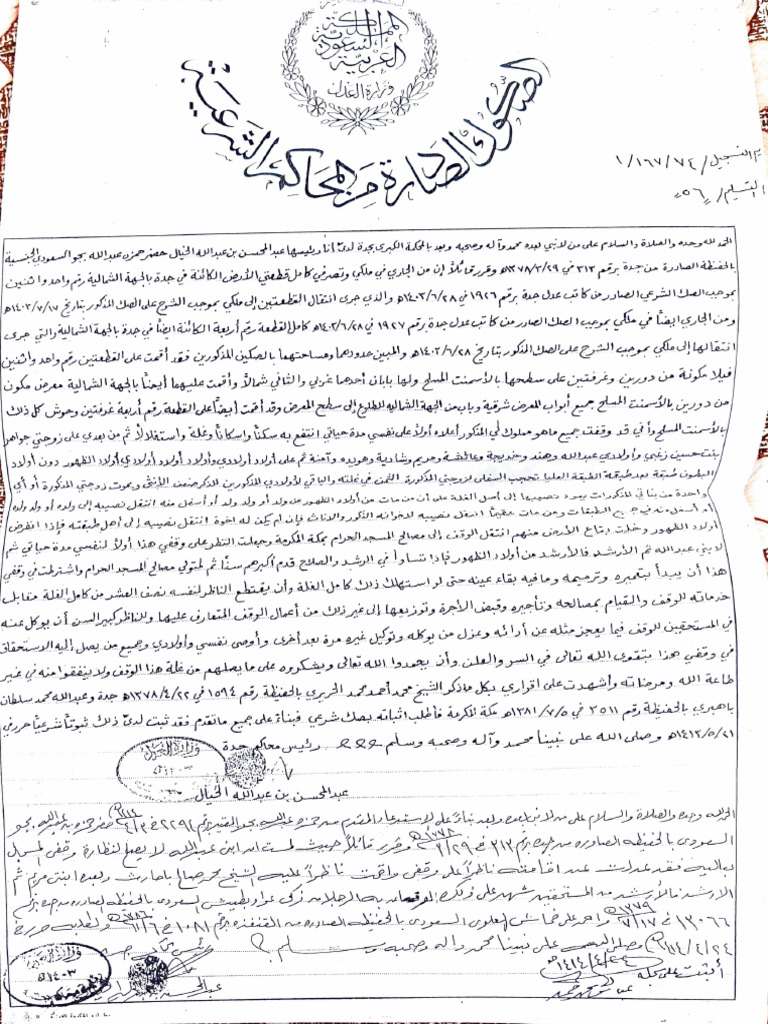 المملكة العربية السعودية
وزارة العدل
الصكوك الصادرة من المحاكم الشرعية
التسجيل / ١/١٦٧/٧٤
التسليم / ٥٦
الحمد لله وحده والصلاة والسلام على من لا نبي بعده محمد وآله وصحبه وبعد بالمحكمة الكبرى بجدة لديّ أنا رئيسها عبد المحسن بن عبد الله الخيال حضر حمزه عبد الله بجو السعودي الجنسية
بالحفيظة الصادرة من جدة برقم ٣١٣ في ١٣٧٨/٣/٢٩هـ وقرر قائلاً إن من الجاري في ملكي وتصرفي كامل قطعتي الأرض الكائنة في جدة بالجهة الشمالية رقم واحد واثنين
بموجب الصك الشرعي الصادر من كاتب عدل جدة برقم ١٩٢٦ في ١٤٠٢/٦/٢٨هـ والذي جرى انتقال القطعتين إلى ملكي بموجب الشرح على الصك المذكور بتاريخ ١٤٠٢/٧/١٧هـ
ومن الجاري أيضاً في ملكي بموجب الصك الصادر من كاتب عدل جدة برقم ١٩٢٧ في ١٤٠٢/٦/٢٨هـ كامل القطعة رقم أربعة الكائنة أيضاً في جدة بالجهة الشمالية والتي جرى
انتقالها إلى ملكي بموجب الشرح على الصك المذكور بتاريخ ١٤٠٢/٦/٢٨هـ والمبين حدودهما ومساحتهما بالصكين المذكورين فقد أقمت على القطعتين رقم واحد واثنين
فيلا مكونة من دورين وغرفتين على سطحها بالأسمنت المسلح ولها بابان أحدهما غربي والثاني شمالاً وأقمت عليهما أيضاً بالجهة الشمالية معرض مكون
من دورين بالأسمنت المسلح جميع أبواب المعرض شرقية وباب من الجهة الشمالية للطلوع إلى سطح المعرض وقد أقمت أيضاً على القطعة رقم أربعة غرفتين وحوش كل ذلك
بالأسمنت المسلح وأني قد وقفت جميع ماهو مملوك لي المذكور أعلاه أولاً على نفسي مدة حياتي انتفع به سكناً واسكاناً وغلة واستغلالاً ثم من بعدي على زوجتي جواهر
بنت حسين زغبي وأولادي عبد الله وهند وخديجة وعائشة ومريم وشادية وهويده وآمنة ثم على أولاد أولادي وأولاد أولاد أولادي أولاد الظهور دون أولاد
البطون طبقة بعد طبقة الطبقة العليا تحجب السفلى لزوجتي المذكورة الثمن في غلته والباقي لأولادي المذكورين للذكر ضعف الأنثى وبموت زوجتي المذكورة أو أي
واحدة من بناتي المذكورات يعود نصيبها إلى أصل الغلة على أن من مات من أولاد الظهور عن ولد أو ولد ولد أو أسفل منه انتقل نصيبه إلى ولده أو ولد ولده
أو أسفل منه في جميع الطبقات ومن مات عقيماً انتقل نصيبه لاخوانه الذكور والاناث فإن لم يكن له اخوة انتقل نصيبه إلى أهل طبقته فإذا انقرض
أولاد الظهور وخلت بقاع الأرض منهم انتقل الوقف إلى مصالح المسجد الحرام بمكة المكرمة وجعلت النظر على وقفي هذا أولاً لنفسي مدة حياتي ثم
لابني عبد الله ثم الأرشد فالأرشد من أولاد الظهور فإذا تساوا في الرشد والصلاح قدم أكبرهم سناً ثم لمتولي مصالح المسجد الحرام واشترطت في وقفي
هذا أن يبدأ بتعميره وترميمه ومافيه بقاء عينه حتى لو استهلك ذلك كامل الغلة وأن يقتطع الناظر لنفسه نصف العشر من كامل الغلة مقابل
خدماته للوقف والقيام بمصالحه وتأجيره وقبض الأجرة وتوزيعها إلى غير ذلك من أعمال الوقف المتعارف عليها وللناظر كبير السن أن يوكل عنه
في المستحقين للوقف فيما يعجز مثله عن أدائه وعزل من يوكله وتوكيل غيره مرة بعد أخرى وأوصي نفسي وأولادي وجميع من يصل إليه الاستحقاق
في وقفي هذا بتقوى الله تعالى في السر والعلن وأن يحمدوا الله تعالى ويشكروه على ما يصلهم من غلة هذا الوقف ولا ينفقوا منه في غير
طاعة الله ومرضاته وأشهدت على اقراري بكل ماذكر الشيخ محمد أحمد محمد الحريري بالحفيظة رقم ١٥٩٤ في ١٣٧٨/٤/٢٢هـ جدة وعبد الله محمد سلطان
باهبري بالحفيظة رقم ٢٥١١ في ١٣٨١/٧/٥هـ مكة المكرمة فأطلب اثباته بصك شرعي فبناءً على جميع ماتقدم فقد ثبت لديّ ذلك ثبوتاً شرعياً حرر في
١٤١٢/٥/٢١هـ وصلى الله على نبينا محمد وآله وصحبه وسلم رئيس محاكم جدة
وزارة العدل
١٤٠٣هـ
عبد المحسن بن عبد الله الخيال
الحمد لله وحده والصلاة والسلام على من لا نبي بعده وبعد بناء على الاستدعاء المقدم من حمزه عبد الله بجو المقيد برقم ٢٢٩٢ في حضر حمزه بن عبد الله بجو
السعودي بالحفيظة الصادره من جده برقم ٣١٣ في ٣/٢٩ ١٣٧٨هـ وقرر قائلاً حيث لمست ان ابن عبد الله لا يصلح لنظارة وقفي المسجل
بعاليه فقد عدلت عن اقامته ناظراً على وقفي واقمت ناظراً عليه الشيخ محمد صالح باحارث وبعده ابنتي مريم ثم
الارشد فالارشد من المستحقين شهد على ذلك
١٣٠٦٦ في ٧/١٧ ١٣٧٩هـ السعودي بالحفيظة الصادره من القنفذه برقم ١٠٨١ في
وصلى الله على نبينا محمد واله وصحبه وسلم
١٤١٤/٤/٢٤هـ
وزارة العدل
١٤٠٣هـ